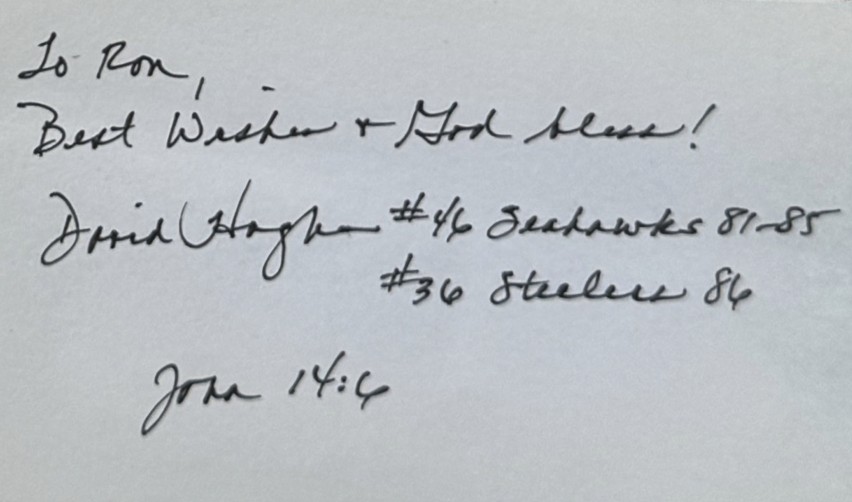 To Ron,
Best Wishes + God bless!
David Hughes #46 Seahawks 81-85
#36 Steelers 86
John 14:6